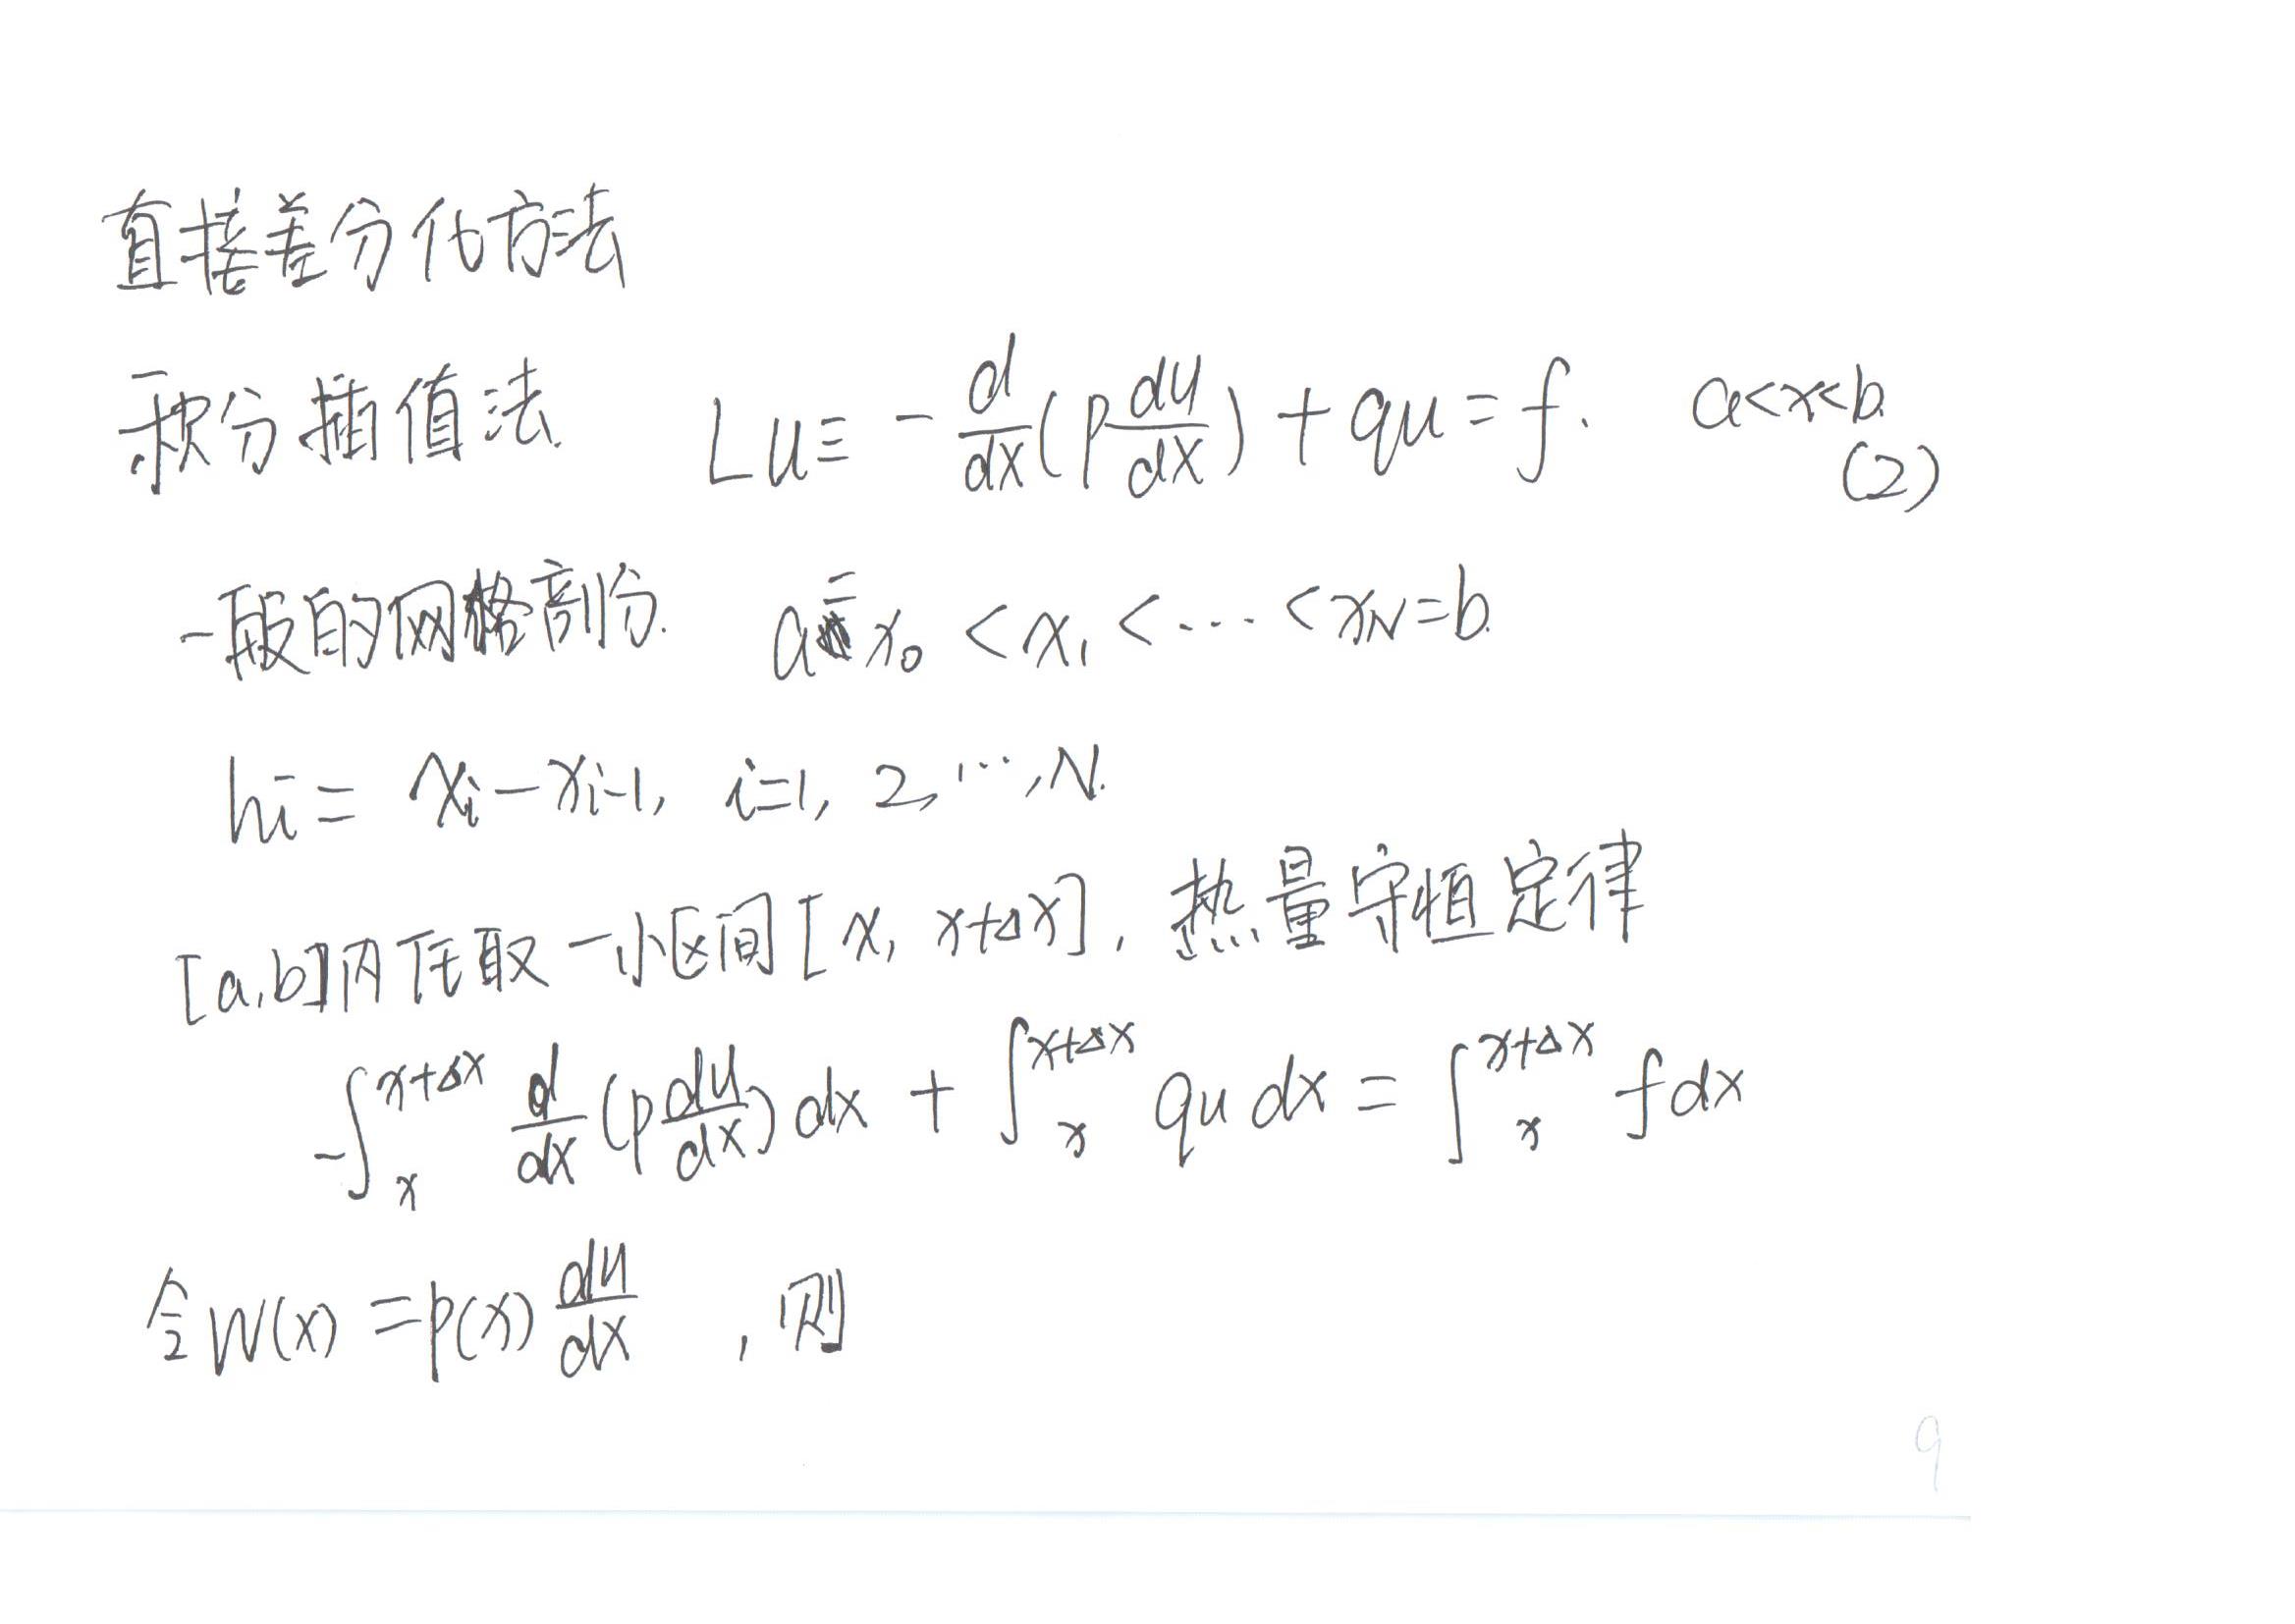 直接差分化方法
积分插值法. Lu ≡ -d/dx(p du/dx) + qu = f. a<x<b.
(2)
一般的网格剖分. a = x₀ < x₁ < ... < x_N = b.
hᵢ = xᵢ - xᵢ₋₁, i=1, 2, ..., N.
[a,b]内任取一小区间[x, x+Δx], 热量守恒定律
-∫ₓ^(x+Δx) d/dx(p du/dx) dx + ∫ₓ^(x+Δx) qu dx = ∫ₓ^(x+Δx) f dx
令W(x) = p(x) du/dx , 则
9